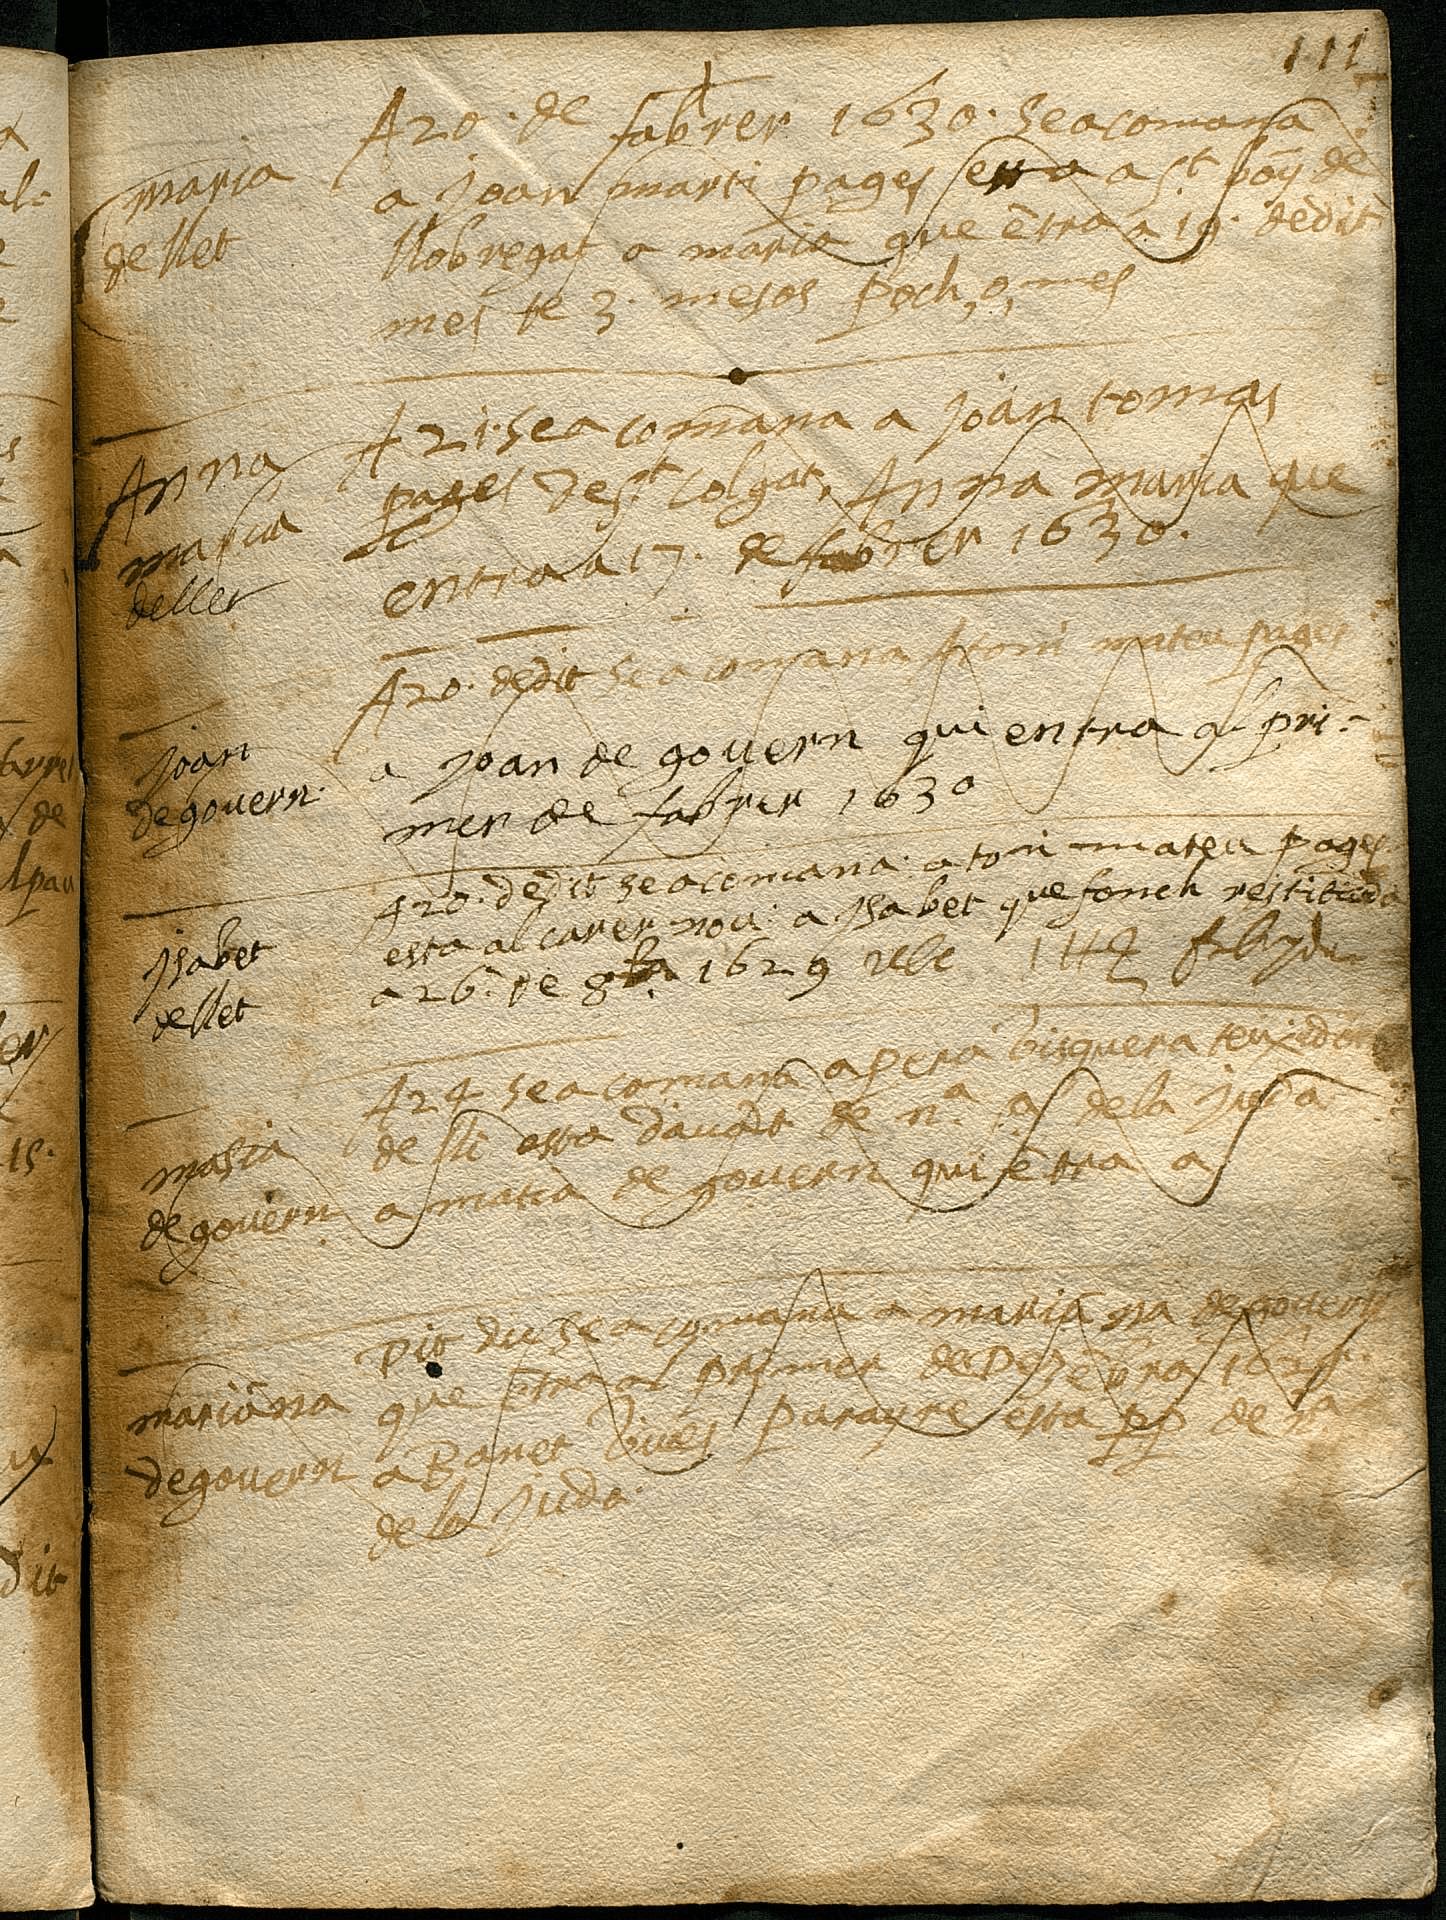 111
maria
de llet
A 20 · de fabrer 1630 · Se a comana
a Joan marti pages esta a St boy de
llobregat a maria que ētra a 19 · dedit
mes te 3 · mesos poch, o, mes
Anna
maria
de llet
A 21 · se a comana a Joan tomas
pages de St colgat, Anna maria que
entra a 17 · de fabrer 1630 ·
Joan
de govern ·
A 20 · dedit se a comana a toni mateu pages
a Joan de govern qui entra al pri-
mer de fabrer 1630
Jsabet
de llet
A 20 · dedit se a comana · a toni mateu pages
esta al carer nou · a Jsabet que fonch restituida
a 26 · de 8bre 1629
de govern
A 24 se a comana a pera bisquera teuxidor
de lli esta davāt de na · sa de la Juda
a matia de govern qui ētra a
mariāna
de govern
Dit du se a comana a mariā na de govern
que ētra al primer de Dezēbra
a Banet vives parayre esta pp de na sa
de la Juda ·